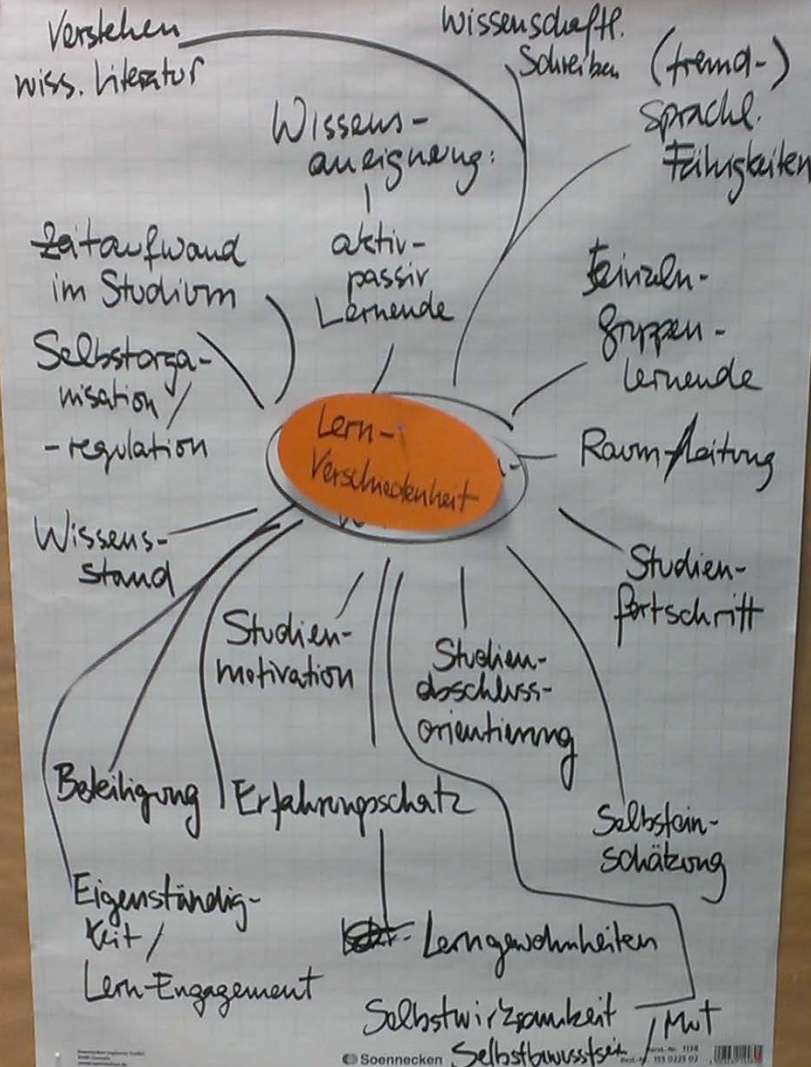 Verstehen
wiss. Literatur
Wissenschaftl.
Schreiben
(fremd-)
Sprachl.
Fähigkeiten
Wissens-
aneignung:
aktiv-
passiv
Lernende
Zeitaufwand
im Studium
Einzeln-
gruppen-
lernende
Selbstorga-
nisation /
-regulation
Lern-
Verschiedenheit
Raum-/Leitung
Wissens-
stand
Studien-
fortschritt
Studien-
motivation
Studien-
abschluss-
orientierung
Beteiligung
Erfahrungsschatz
Selbstein-
schätzung
Eigenständig-
keit /
Lern-Engagement
Lerngewohnheiten
Selbstwirksamkeit
/ Mut
Selbstbewusstsein
Soennecken